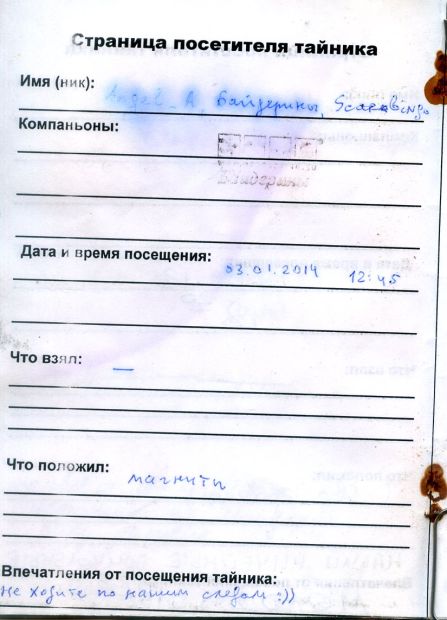 Страница посетителя тайника
Имя (ник): Angel_A, Байдерины, Scarabingo
Компаньоны:
Дата и время посещения: 03.01.2014 12:45
Что взял: —
Что положил: магниты
Впечатления от посещения тайника:
Не ходите по нашим следам :))